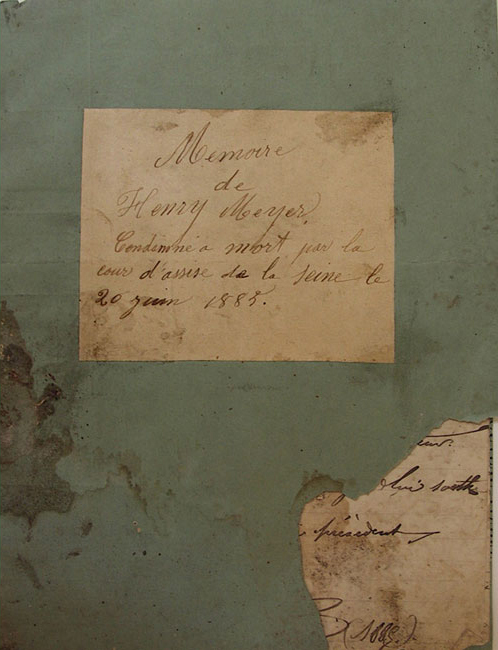 Memoire
de
Henry Meyer.
Condemné a mort par la
cour d'assise de la seine le
20 juin 1885.
lui
président
(1885).